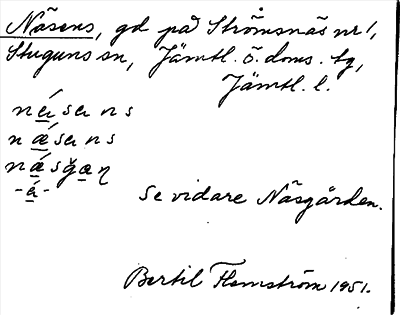 Näsens, gd på Strömsnäs nr 1,
Stuguns sn, Jämtl. ö. doms. tg,
Jämtl. l.
næ̀sens
nǽsens
-ǽ-
Se vidare Näsgården.
Bertil Flemström 1951.